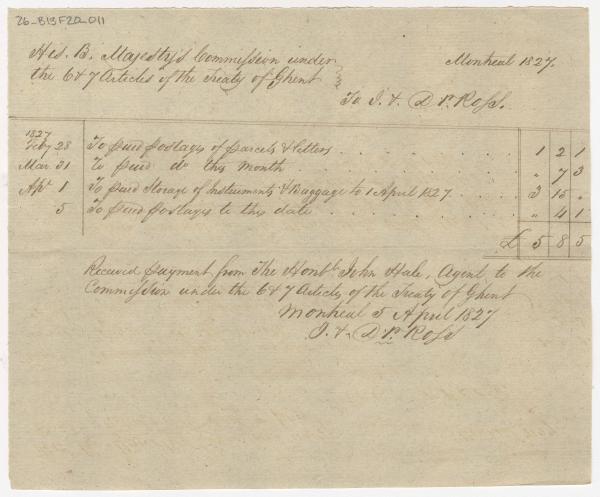 26-B13F20-011
His. B. Majesty's Commission under
the 6 & 7 Articles of the Treaty of Ghent
Montreal 1827.
To J. & D Ross.
1827
Feby 28 To paid postages of parcels & letters 1 2 1
Mar. 31 To paid do this month " 7 3
Apl. 1 To paid Storage of Instruments & Baggage to 1 April 1827 3 15 "
5 To paid postages to this date " 4 1
£ 5 8 5
Received payment from The Honble John Hale, Agent to the
Commission under the 6 & 7 Articles of the Treaty of Ghent
Montreal 5 April 1827
J. & D Ross